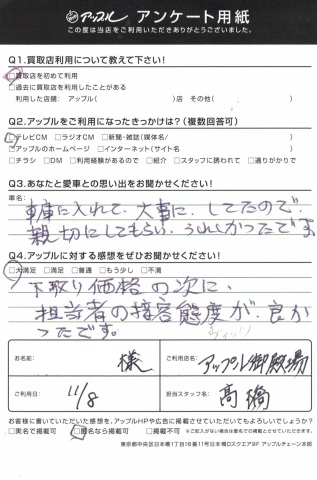 アップル アンケート用紙
この度は当店をご利用いただきありがとうございました。
Q1.買取店利用について教えて下さい!
□買取店を初めて利用
□過去に買取店を利用したことがある
利用した店舗: アップル( )店 その他( )
Q2.アップルをご利用になったきっかけは?(複数回答可)
□テレビCM □ラジオCM □新聞・雑誌(媒体名/ )
□アップルのホームページ □インターネット(サイト名 )
□チラシ □DM □利用経験があるので □紹介 □スタッフに誘われて □通りがかりで
Q3.あなたと愛車との思い出をお聞かせください!
車名:
車庫に入れて、大事に、してたので
親切にしてもらい、うれしかったです
Q4.アップルに対する感想をぜひお聞かせください!
□大満足 □満足 □普通 □もう少し □不満
下取り価格の次に、
担当者の接客態度が、良か
ったです。
お名前: 様
ご利用店名: アップル御殿場
ご利用日: 11/8
担当スタッフ名: 高橋
お客様に書いていただいた感想を、アップルHPや広告に掲載させていただいてもよろしいでしょうか?
□実名で掲載可 □匿名なら掲載可 □掲載不可 ※ご記入がない場合は匿名での掲載とさせていただきます。
東京都中央区日本橋1丁目16番11号日本橋Dスクエア9F アップルチェーン本部